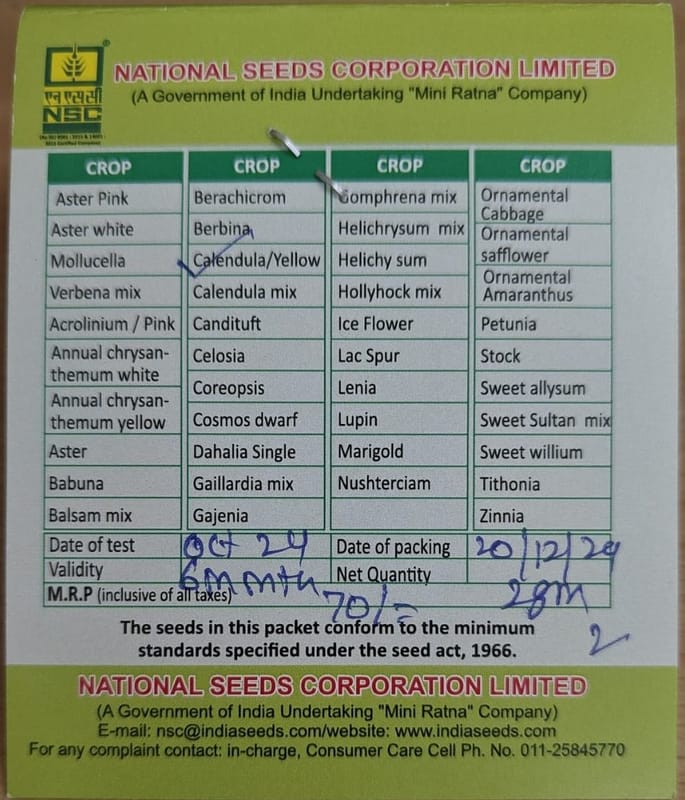 ®
एन एस सी
NSC
NATIONAL SEEDS CORPORATION LIMITED
(A Government of India Undertaking "Mini Ratna" Company)
CROP CROP CROP CROP
Aster Pink
Aster white
Mollucella
Verbena mix
Acrolinium / Pink
Annual chrysan-
themum white
Annual chrysan-
themum yellow
Aster
Babuna
Balsam mix
Berachicrom
Berbina
Calendula/Yellow
Calendula mix
Candituft
Celosia
Coreopsis
Cosmos dwarf
Dahalia Single
Gaillardia mix
Gajenia
Gomphrena mix
Helichrysum mix
Helichy sum
Hollyhock mix
Ice Flower
Lac Spur
Lenia
Lupin
Marigold
Nushterciam
Ornamental
Cabbage
Ornamental
safflower
Ornamental
Amaranthus
Petunia
Stock
Sweet allysum
Sweet Sultan mix
Sweet willium
Tithonia
Zinnia
Date of test Oct 24 Date of packing 20/12/24
Validity 6 Month Net Quantity 2gm
M.R.P (inclusive of all taxes) 70/=
The seeds in this packet conform to the minimum
standards specified under the seed act, 1966.
NATIONAL SEEDS CORPORATION LIMITED
(A Government of India Undertaking "Mini Ratna" Company)
E-mail: nsc@indiaseeds.com/website: www.indiaseeds.com
For any complaint contact: in-charge, Consumer Care Cell Ph. No. 011-25845770